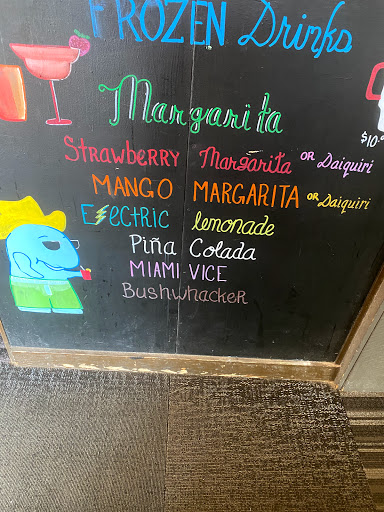 FROZEN Drinks
Margarita
$10.
Strawberry Margarita or Daiquiri
MANGO MARGARITA or Daiquiri
Electric lemonade
Piña Colada
MIAMI VICE
Bushwhacker